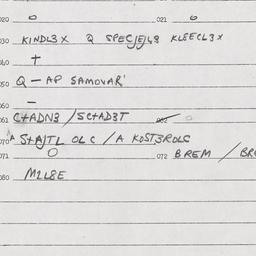 020 O 021 O
030 KINDL3X Q SPECJEJL8 KLEECL3X
040 +
050 Q - AP SAMOVAR'
060 -
061 C+ADN3 / SC+AD3T 062 O
070 A S+AJTL OLC / A KOST3ROLC
071 O 072 BREM / BR
080 M2L8E